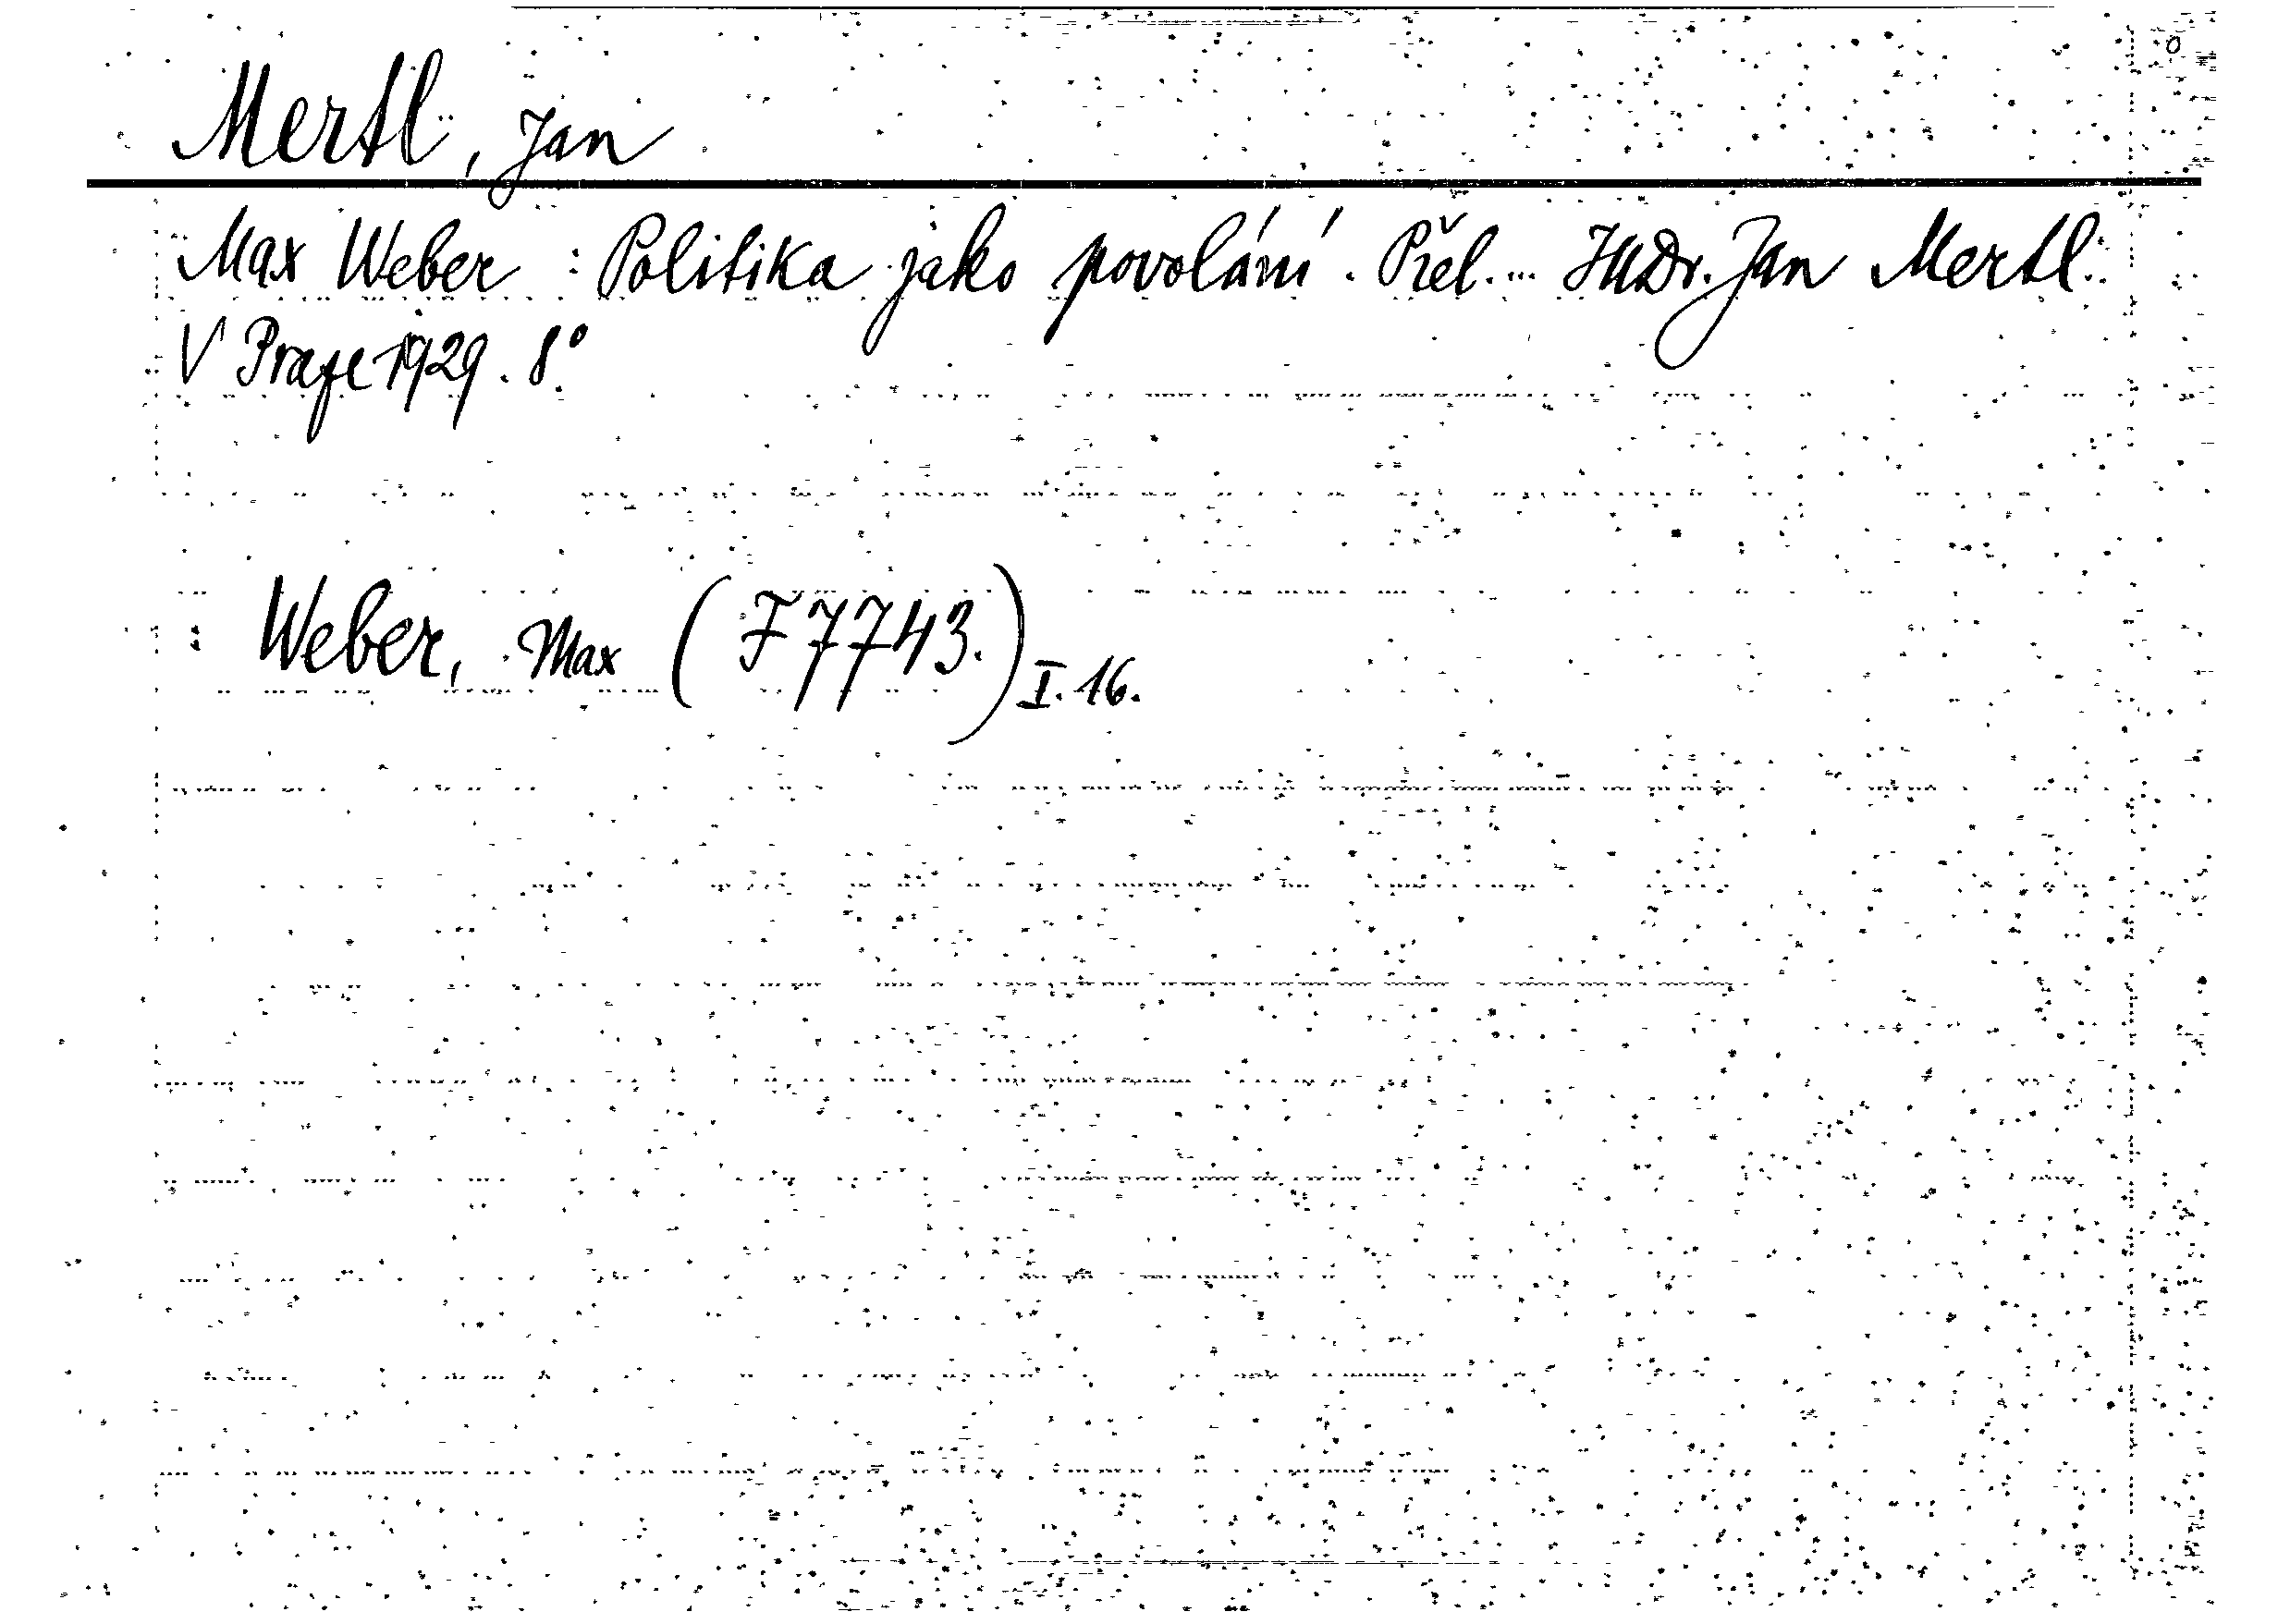 Mertl, Jan
Max Weber : Politika jako povolání. Přel. ... JUDr. Jan Mertl.
V Praze 1929. 8°.
Weber, Max (F 7743.) I. 16.